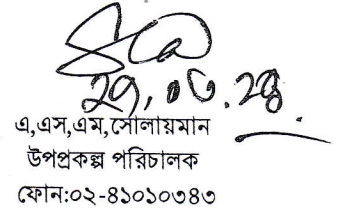 ২৭.০৬.২৪
এ,এস,এম,সোলায়মান
উপপ্রকল্প পরিচালক
ফোন:০২-৪১০১০৩৪৩